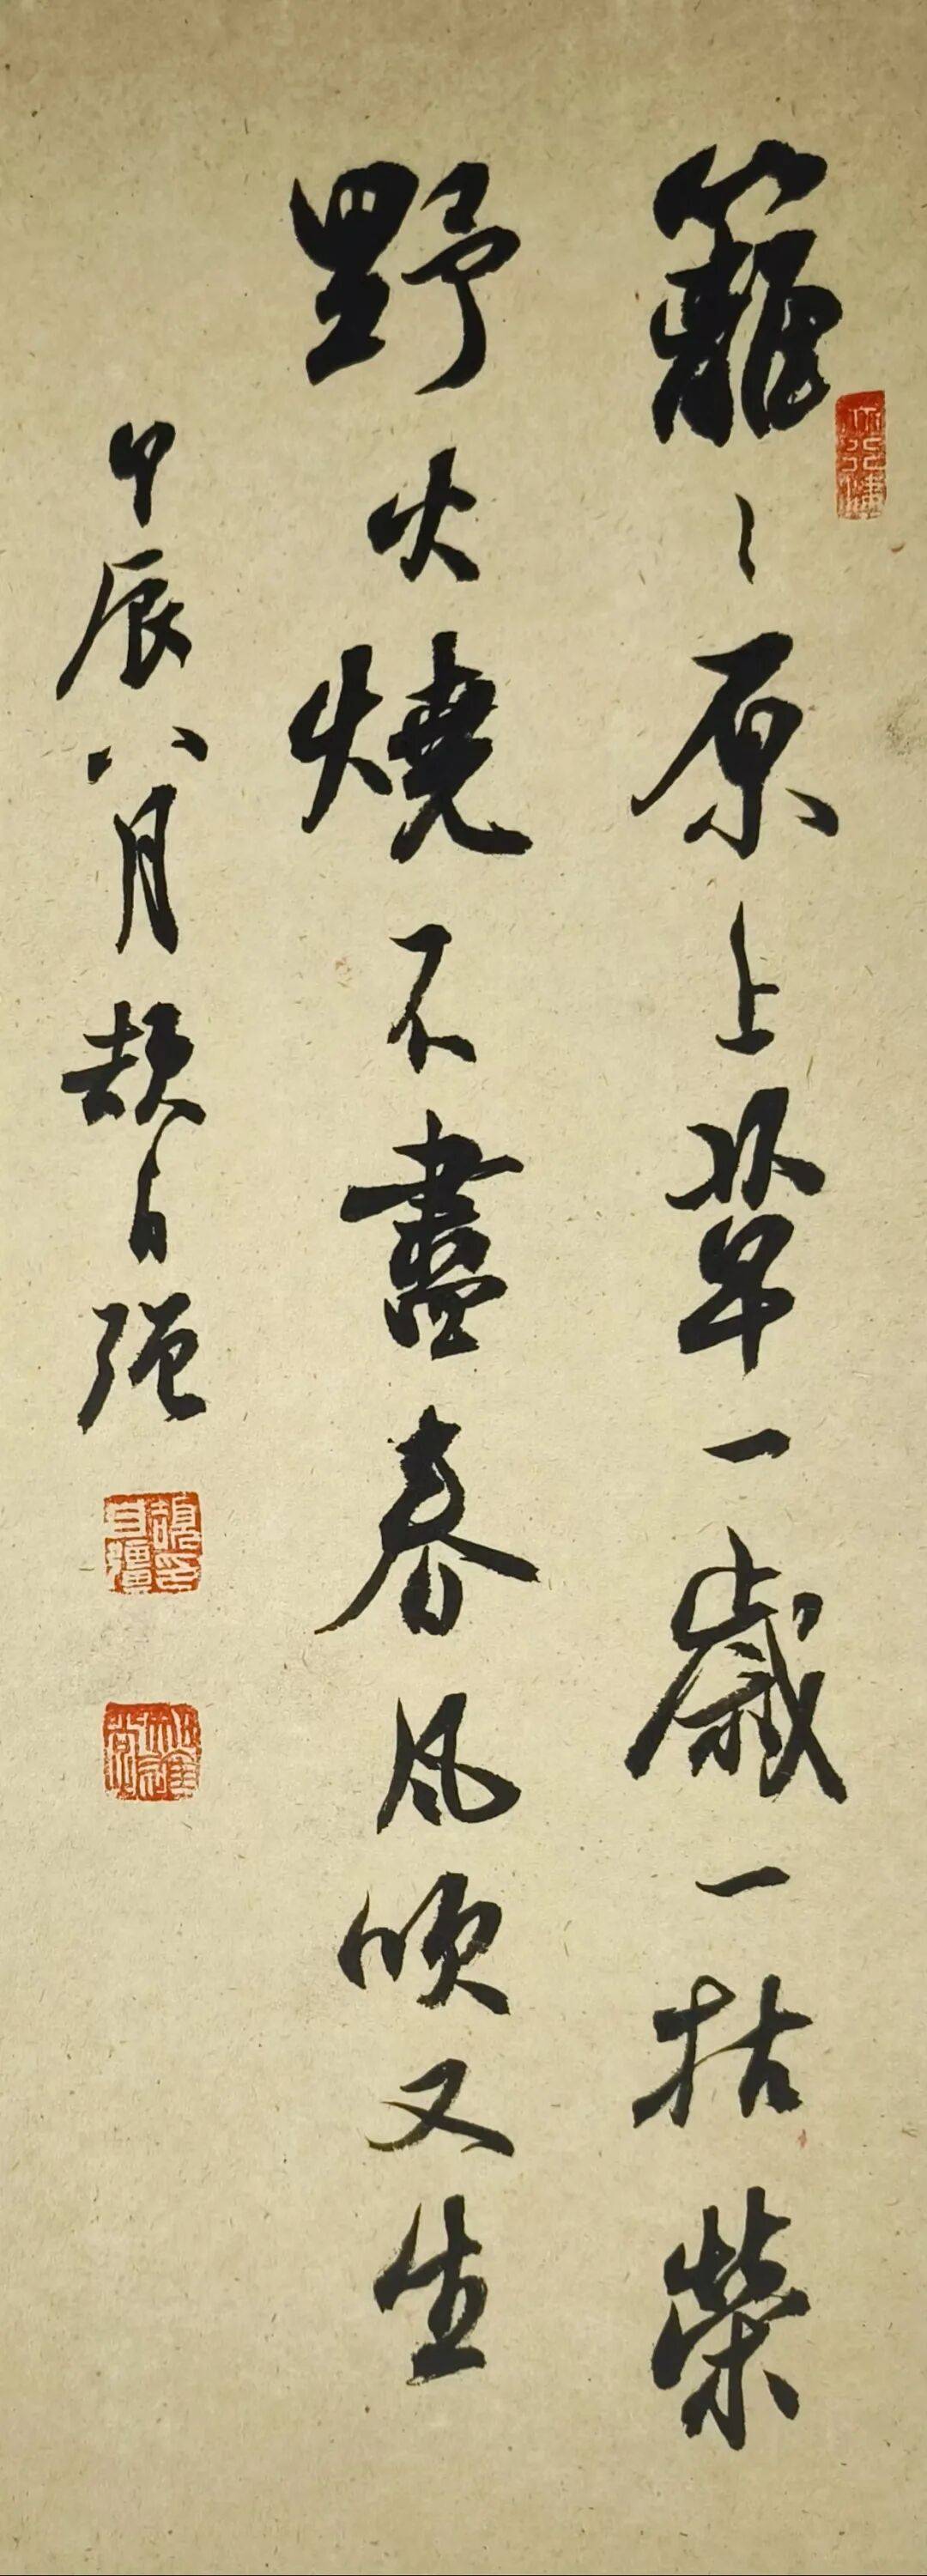 籬〻原上草一歲一枯榮
野火燒不盡春風吹又生
甲辰八月頡自强